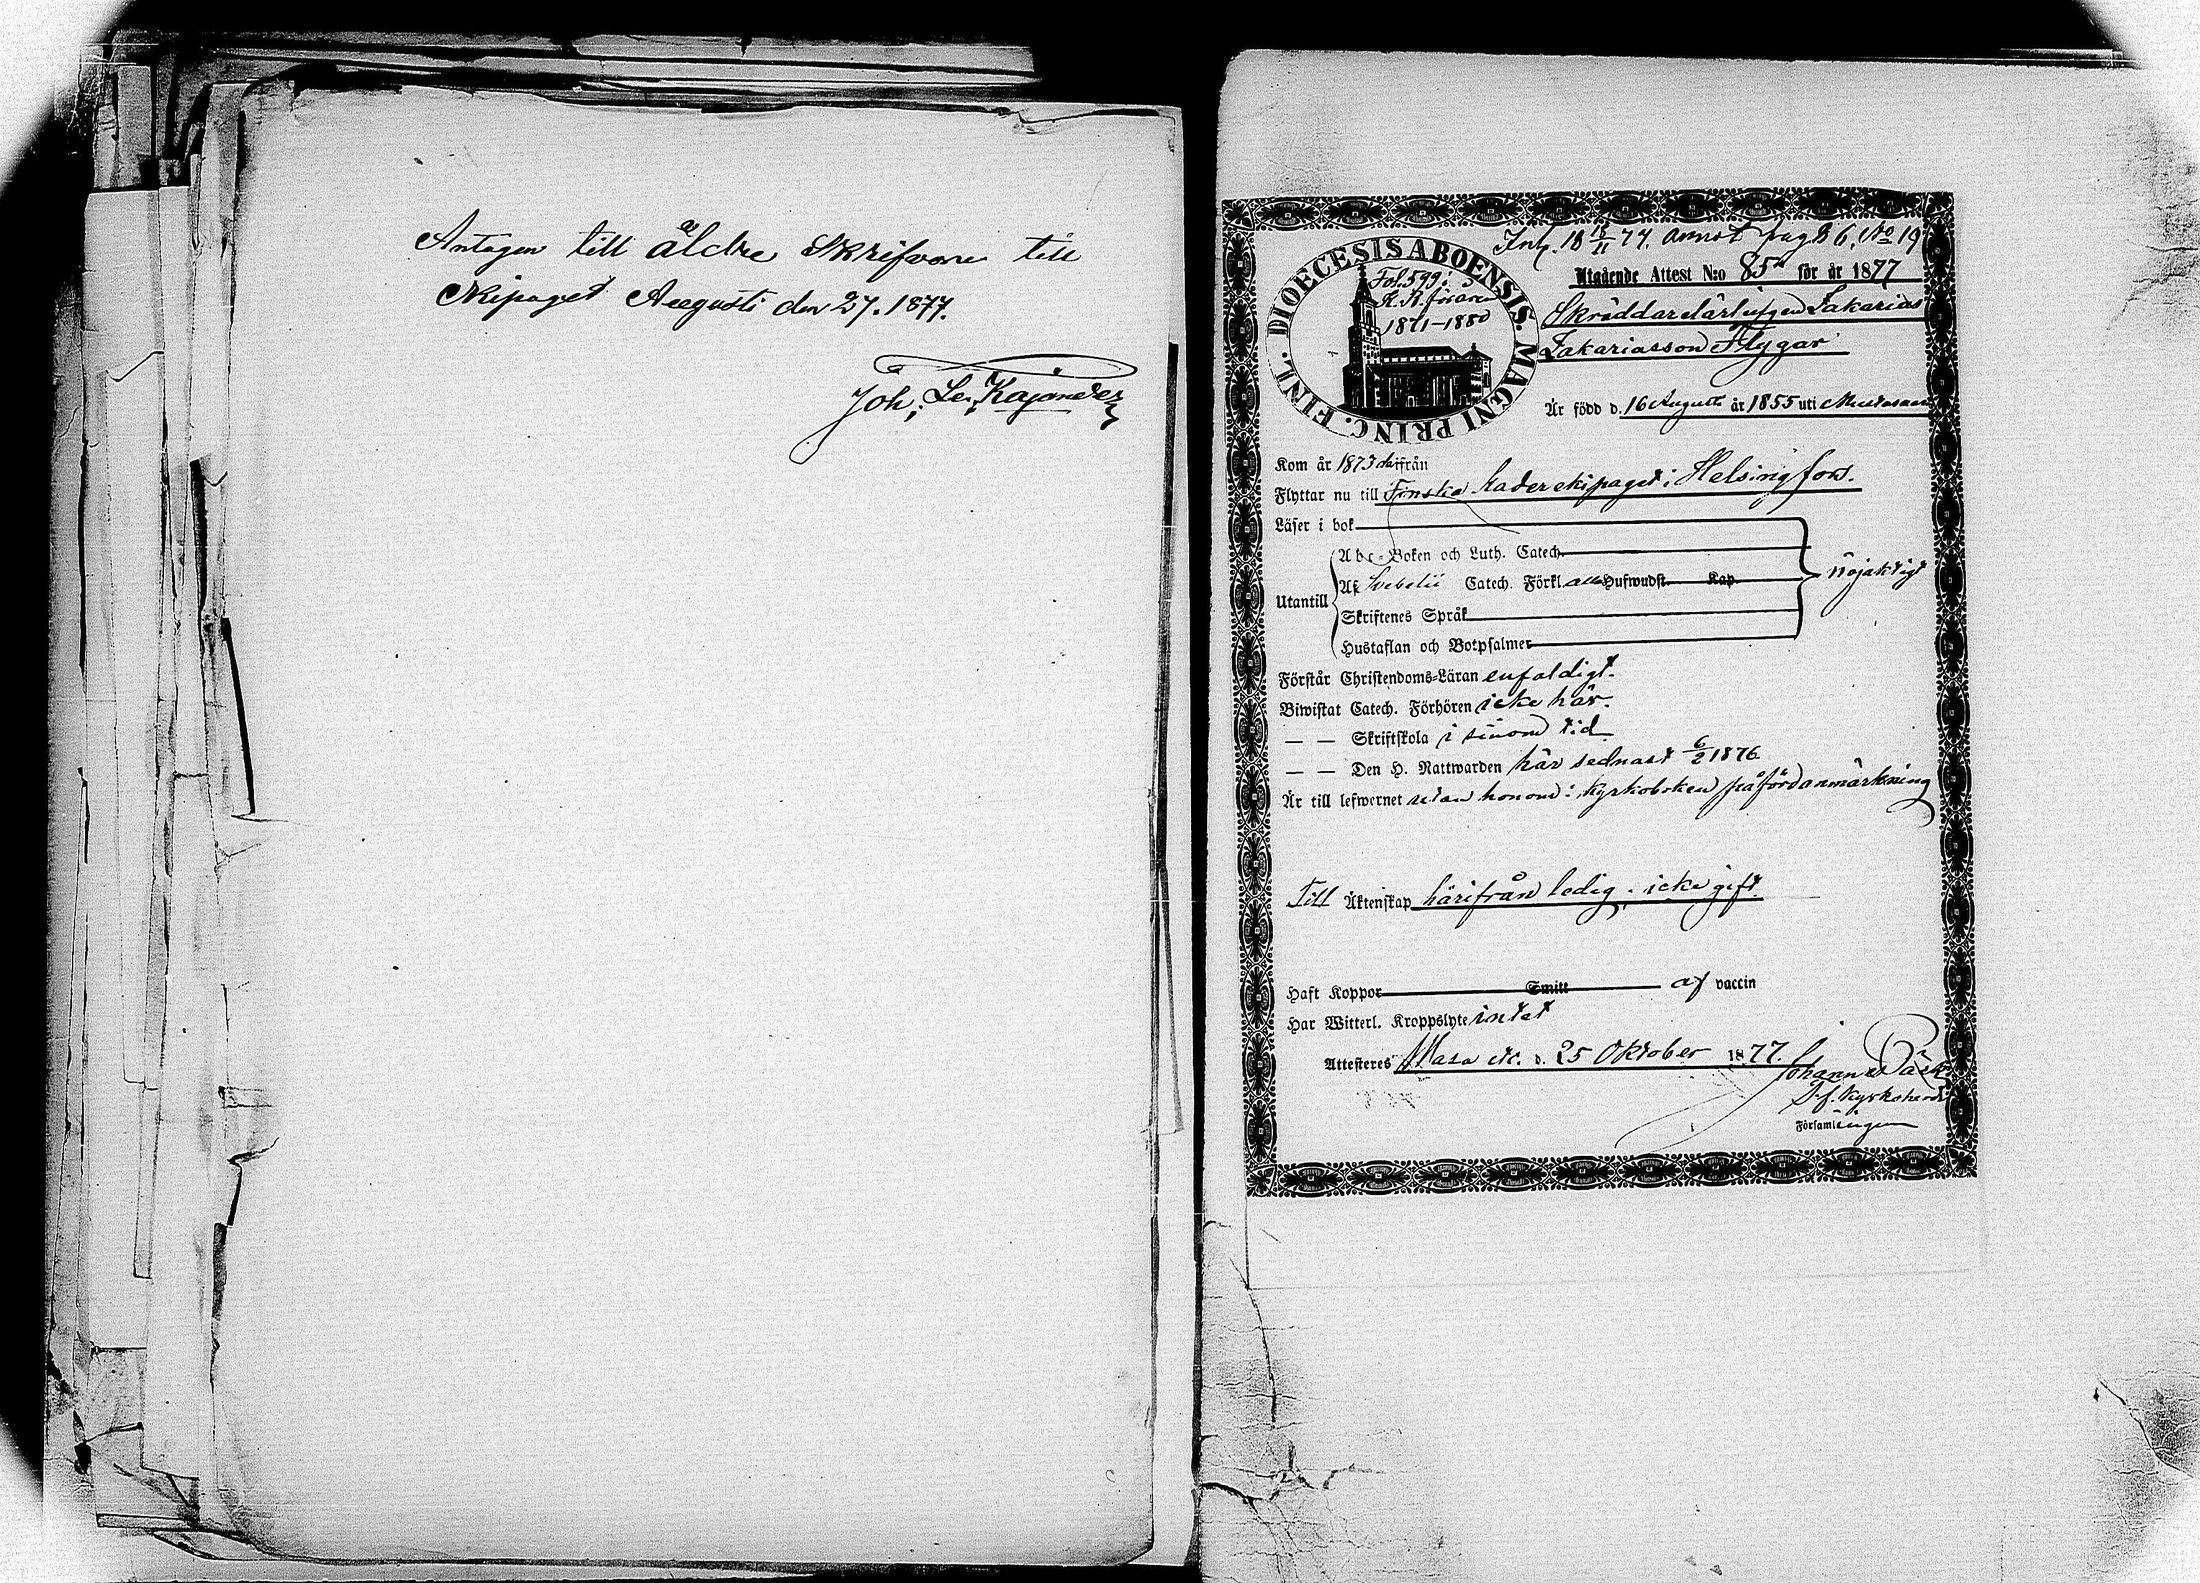 Antagen till äldre Skrifvare till
Ekipaget Augusti den 27. 1877.
Joh. Le. Kajander
Ink. 18 18/11 77. annot pag 86, No 19
DIOECESIS ABOENSIS. MAGNI PRINC. FINL.
Fol. 599 i
1871-1880
Utgående Attest N:o 85 för år 1877
Skräddarelärlingen Zakarias
Zakariasson Flygar
Är född d. 16 Augusti år 1855 uti Mustasaari
Kom år 1873 ifrån
Flyttar nu till Finska kaderekipaget i Helsingfors.
Läser i bok
Abc-Boken och Luth. Catech.
Utantill
Af Svebelii Catech. Förkl. alla Hufwudst. Kap. nöjaktigt
Skriftenes Språk
Hustaflan och Botpsalmer
Förstår Christendoms-Läran enfaldigt.
Biwistat Catech. Förhören icke här.
— — Skriftskola i sinom tid
— — Den H. Nattwarden här sednast 6/2 1876
Är till lefwernet utan honom i kyrkoboken påförd anmärkning
Till Äktenskap härifrån ledig, icke gift.
Haft Koppor Smitt af vaccin
Har Witterl. Kroppslyte intet
Attesteres Wasa etc. d. 25 Oktober 1877.
Johannes Bäck
S.f. Kyrkoherde
Församlingen